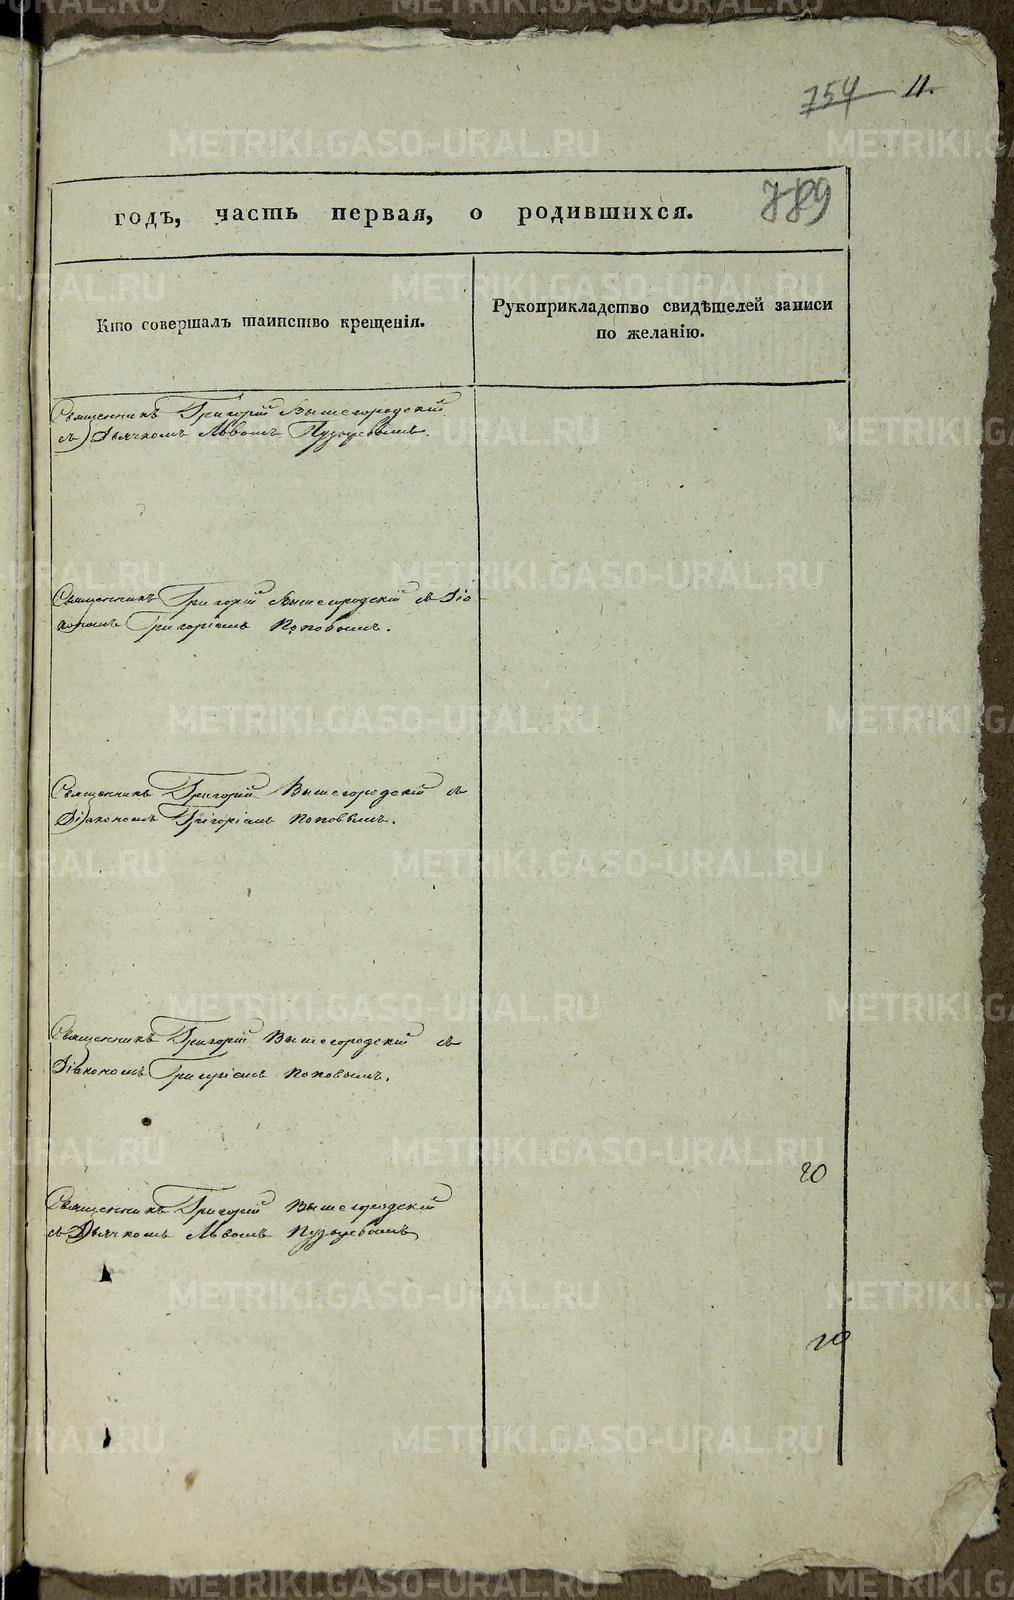 754 11.
789
годъ, часть первая, о родившихся.
Кто совершалъ таинство крещенія.
Рукоприкладство свидѣтелей записи
по желанію.
Священникъ Григорій Вышегородскій
съ Дьячкомъ Львомъ
Священникъ Григорій Вышегородскій съ Діа
кономъ Григоріемъ Поповымъ.
Священникъ Григорій Вышегородскій съ
Діакономъ Григоріемъ Поповымъ.
Священникъ Григорій Вышегородскій съ
Діакономъ Григоріемъ Поповымъ.
20
Священникъ Григорій Вышегородскій
съ Дьячкомъ Львомъ
20
METRIKI.GASO-URAL.RU